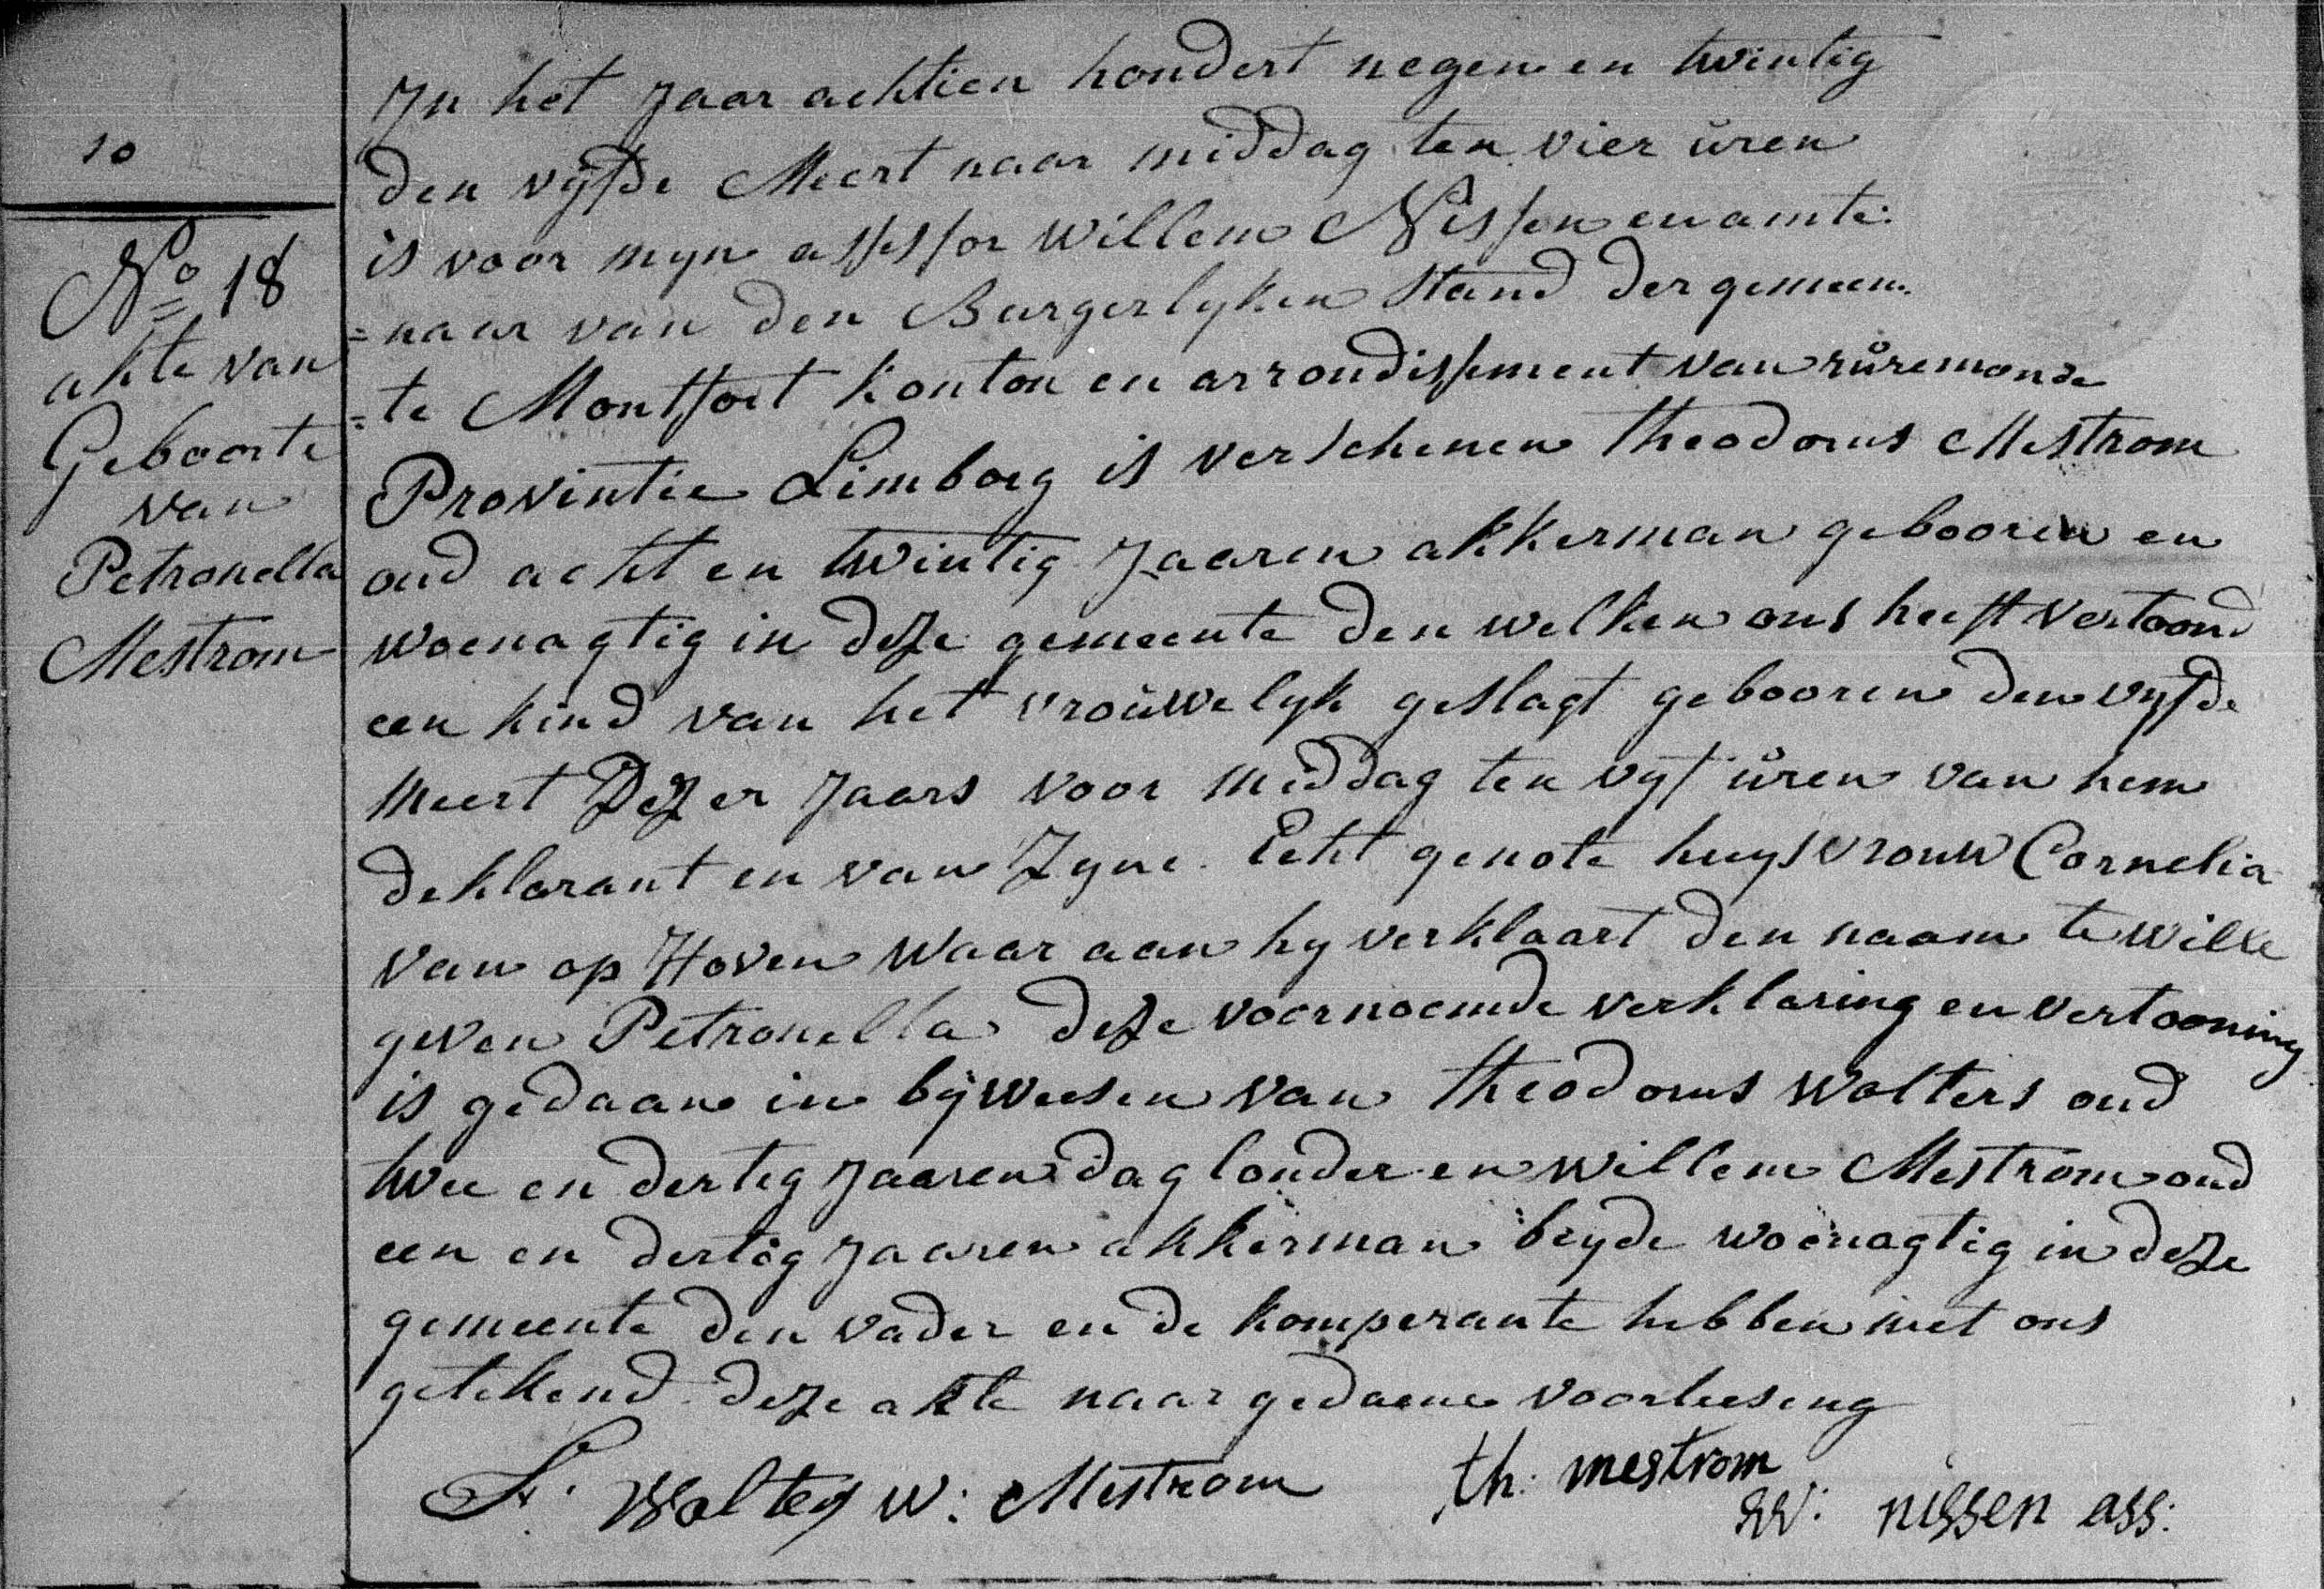 10
No 18
akte van
Geboorte
van
Petronella
Mestrom
In het Jaar achtien hondert negen en twintig
den vyfde Meert naar middag ten vier uren
is voor myn assessor Willem Nissen en amte:
=naar van den Burgerlyken Stand der gemeen.
=te Montfort konton en arrondissement van ruremonde
Provintie Limborg is verschenen Theodorus Mestrom
oud acht en twintig Jaaren akkerman gebooren en
woenagtig in deze gemeente den welken ons heeft vertoond
een kind van het vrouwelyk geslagt gebooren den vyfde
meert Dezer Jaars voor middag ten vyf uren van hem
deklarant en van Zyne Echt genote huysvrouw Cornelia
van op Hoven waar aan hy verklaart den naam te wille
geven Petronella deze voornoemde verklaring en vertooning
is gedaan in bÿweesen van Theodorus Wolters oud
twee en dertig Jaaren dag londer en Willem Mestrom oud
een en dertig Jaaren akkerman beyde woenagtig in deze
gemeente den vader en de komperante hebben met ons
getekend deze akte naar gedaene voorleesing
Wolters w: Mestrom th: mestrom
W: nissen ass: